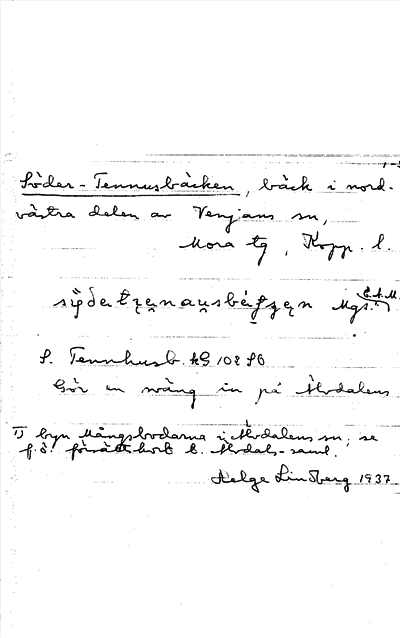 Söder-Tennusbäcken, bäck i nord-
västra delen av Venjans sn,
Mora tg, Kopp. l.
E.A.M.
Mgs.
S. Tennhusb. kG 102 SO
Gör en sväng in på Älvdalens
1) byn Mångsbodarna i Älvdalens sn; se
f.ö. försättsbork t. Älvdals-saml.
Helge Lindberg 1937